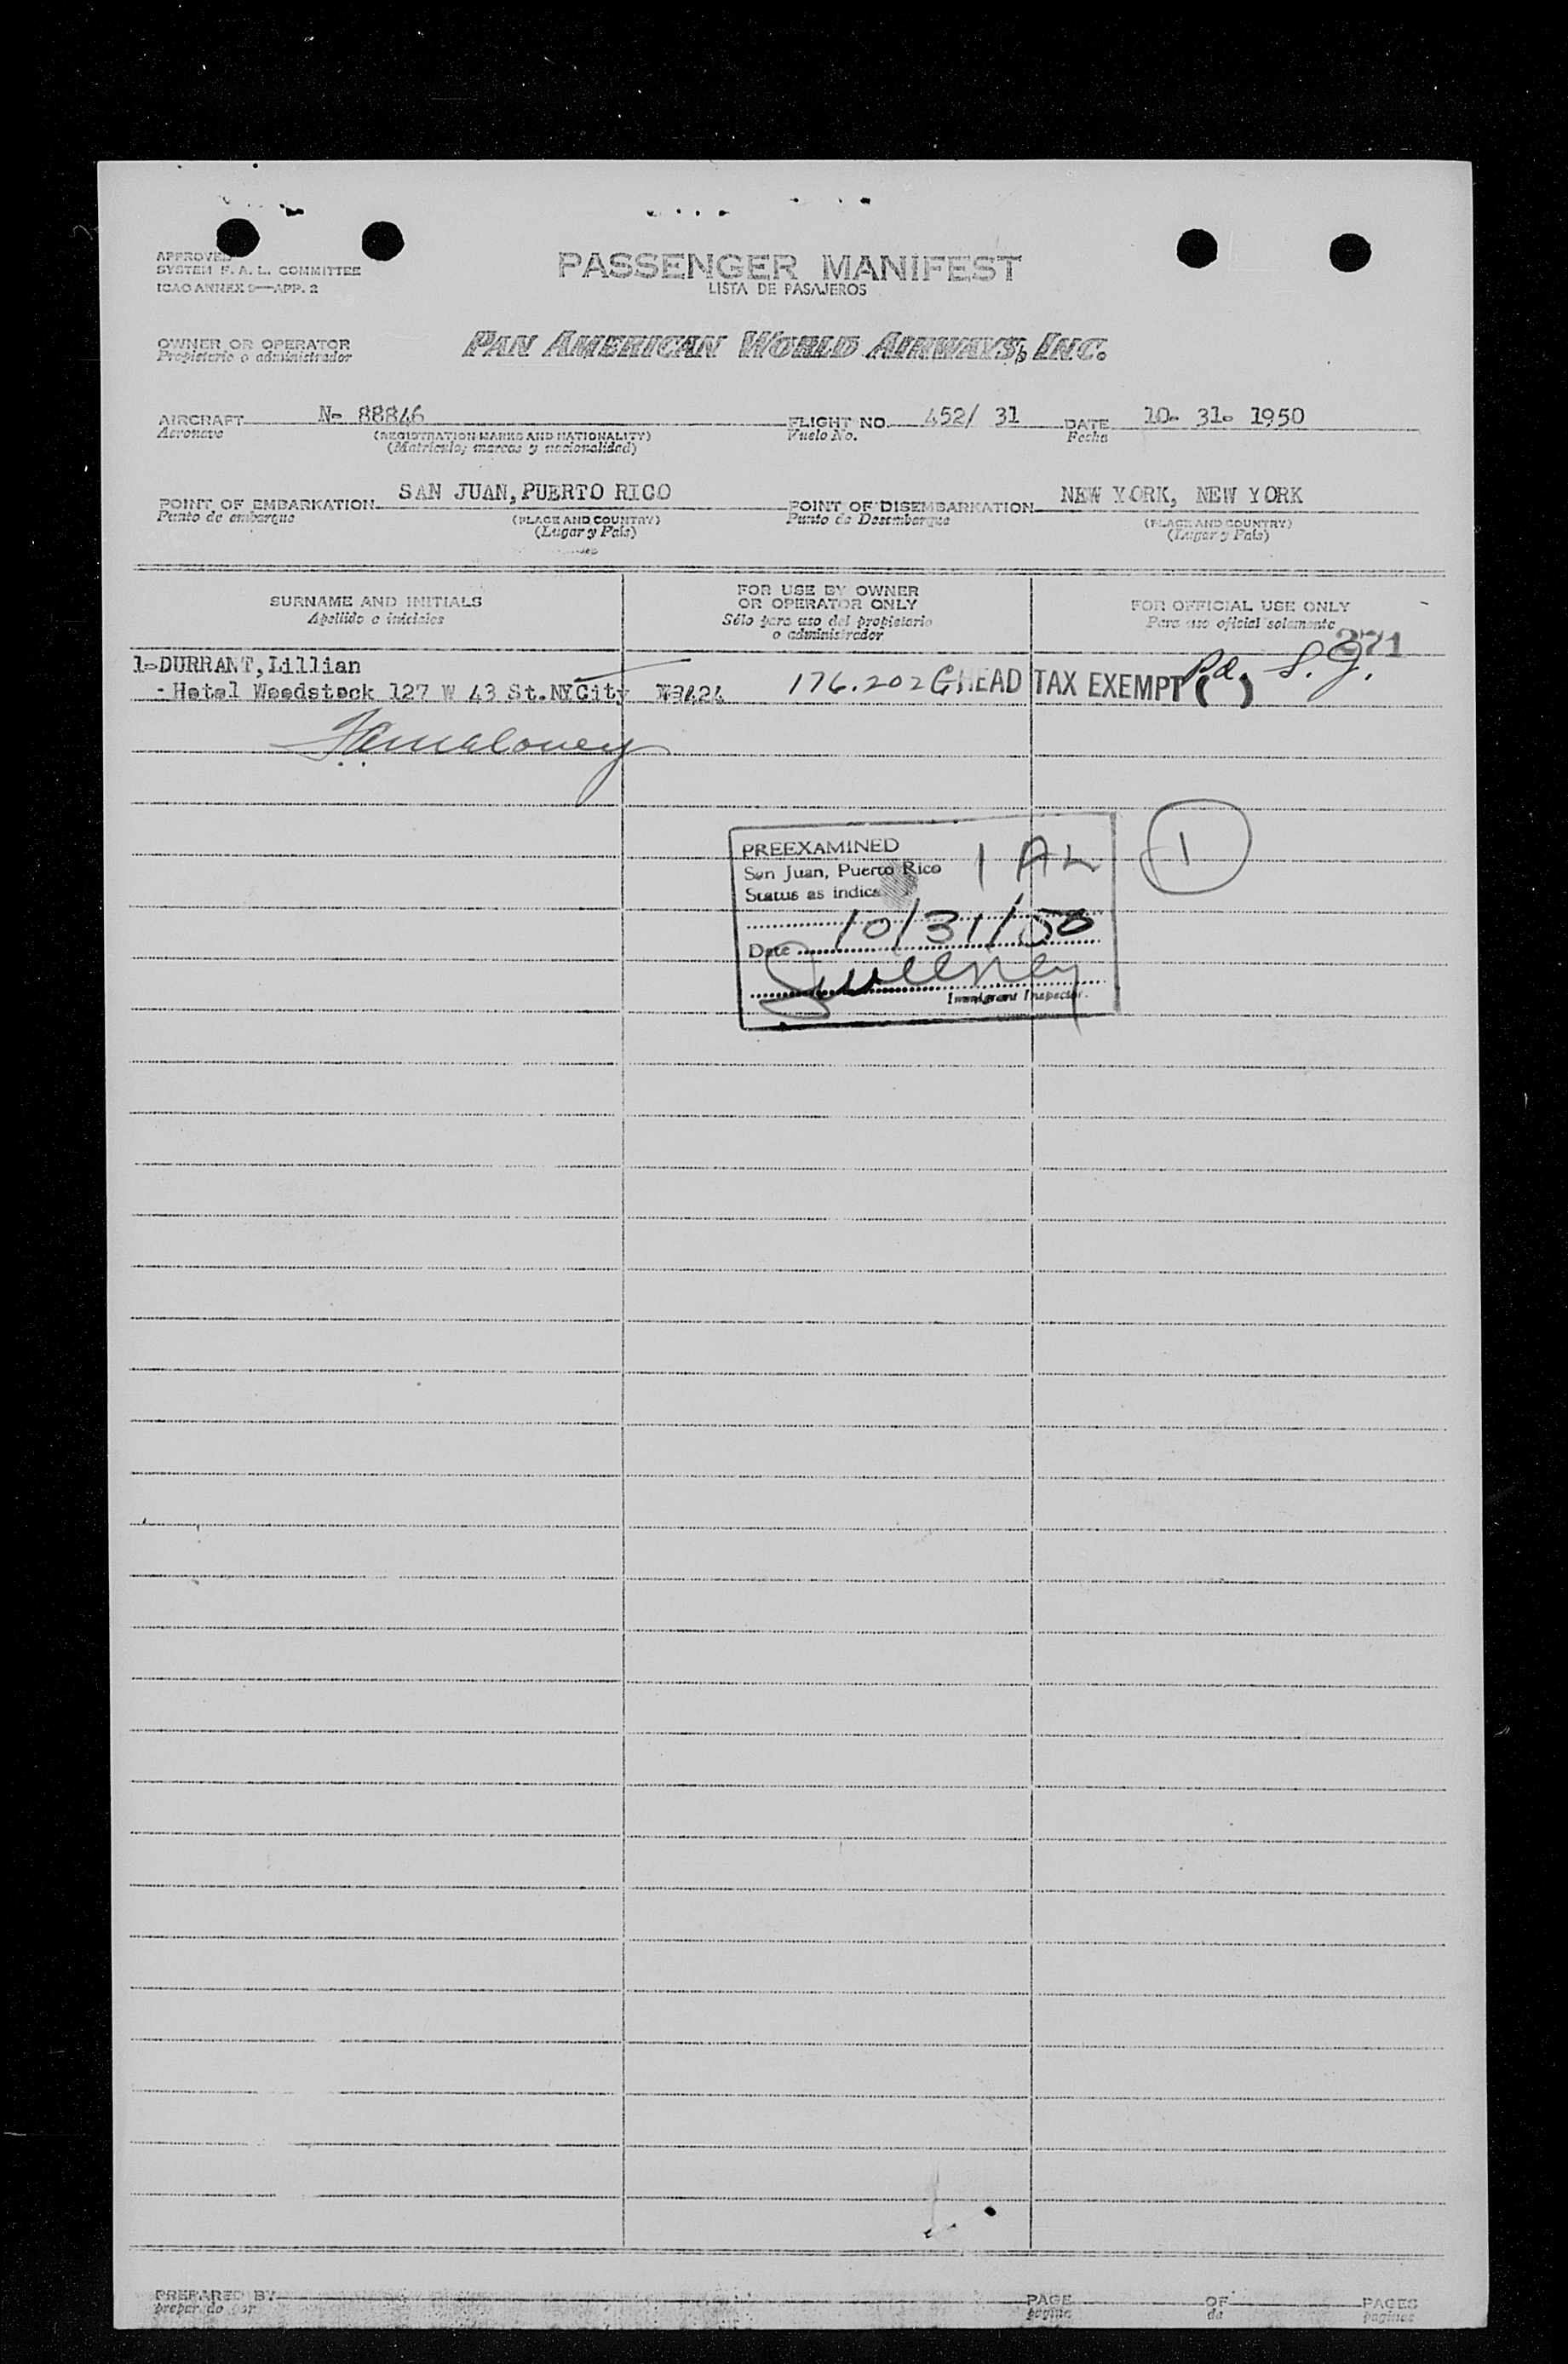 APPROVED
SYSTEM F. A. L. COMMITTEE
ICAO ANNEX 9—APP. 2
PASSENGER MANIFEST
LISTA DE PASAJEROS
OWNER OR OPERATOR
Propietario o administrador
PAN AMERICAN WORLD AIRWAYS, INC.
AIRCRAFT N- 88846 FLIGHT NO. 452/ 31 DATE 10- 31- 1950
Aeronave (REGISTRATION MARKS AND NATIONALITY) Vuelo No. Fecha
(Matricula, marcas y nacionalidad)
POINT OF EMBARKATION SAN JUAN, PUERTO RICO POINT OF DISEMBARKATION NEW YORK, NEW YORK
Punto de embarque (PLACE AND COUNTRY) Punto de Desembarque (PLACE AND COUNTRY)
(Lugar y País) (Lugar y País)
SURNAME AND INITIALS
Apellido e iniciales
FOR USE BY OWNER
OR OPERATOR ONLY
Sólo para uso del propietario
o administrador
FOR OFFICIAL USE ONLY
Para uso oficial solamente
271
1-DURRANT, Lillian
- Hotel Woodstock 127 W 43 St. NYCity 176.202 G HEAD TAX EXEMPT ( ) Pd. S. J.
PREEXAMINED
San Juan, Puerto Rico 1 AL 1
Status as indica
10/31/50
Date
Sweeney
Immigrant Inspector.
PREPARED BY PAGE OF PAGES
preparado por pagina de paginas